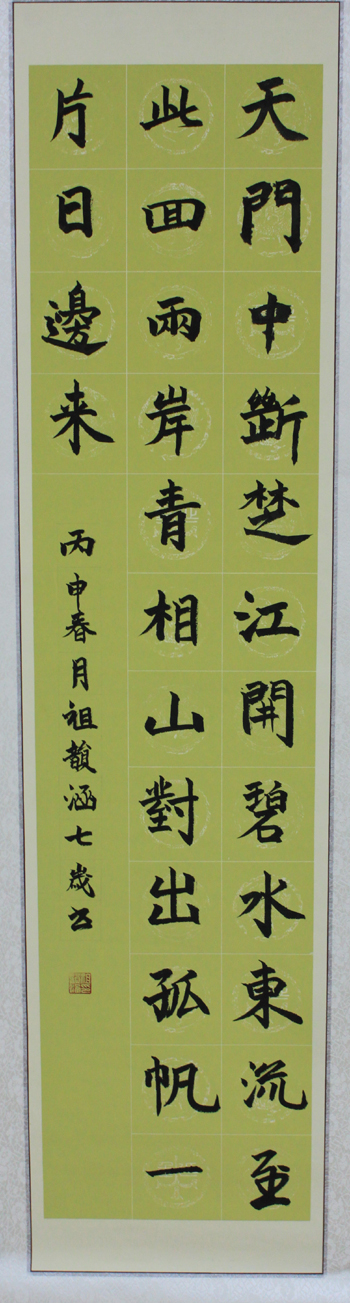 天門中斷楚江開碧水東流至
此回兩岸青相山對出孤帆一
片日邊来
丙申春月祖涵七歲